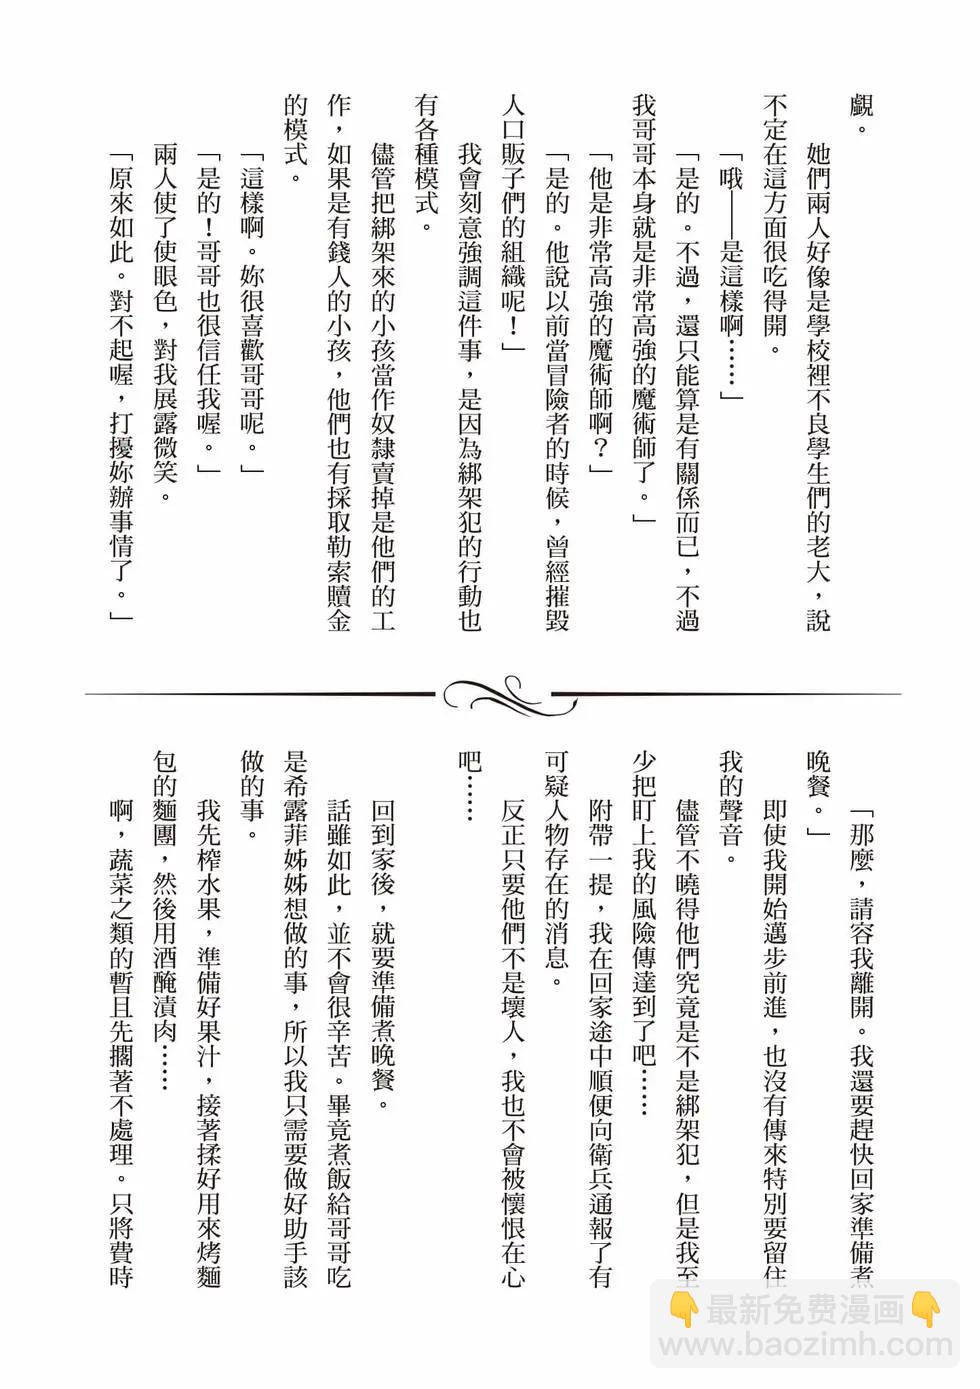 覷。
她們兩人好像是學校裡不良學生們的老大，說
不定在這方面很吃得開。
「哦——是這樣啊……」
「是的。不過，還只能算是有關係而已，不過
我哥哥本身就是非常高強的魔術師了。」
「他是非常高強的魔術師啊？」
「是的。他說以前當冒險者的時候，曾經摧毀
人口販子們的組織呢！」
我會刻意強調這件事，是因為綁架犯的行動也
有各種模式。
儘管把綁架來的小孩當作奴隸賣掉是他們的工
作，如果是有錢人的小孩，他們也有採取勒索贖金
的模式。
「這樣啊。妳很喜歡哥哥呢。」
「是的！哥哥也很信任我喔。」
兩人使了使眼色，對我展露微笑。
「原來如此。對不起喔，打擾妳辦事情了。」
「那麼，請容我離開。我還要趕快回家準備煮
晚餐。」
即使我開始邁步前進，也沒有傳來特別要留住
我的聲音。
儘管不曉得他們究竟是不是綁架犯，但是我至
少把盯上我的風險傳達到了吧……
附帶一提，我在回家途中順便向衛兵通報了有
可疑人物存在的消息。
反正只要他們不是壞人，我也不會被懷恨在心
吧……
回到家後，就要準備煮晚餐。
話雖如此，並不會很辛苦。畢竟煮飯給哥哥吃
是希露菲姊姊想做的事，所以我只需要做好助手該
做的事。
我先榨水果，準備好果汁，接著揉好用來烤麵
包的麵團，然後用酒醃漬肉……
啊，蔬菜之類的暫且先擱著不處理。只將費時
👇最新免費漫画👇
www.baozimh.com